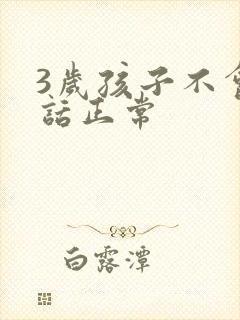 3歲孩子不會
話正常
白露潭